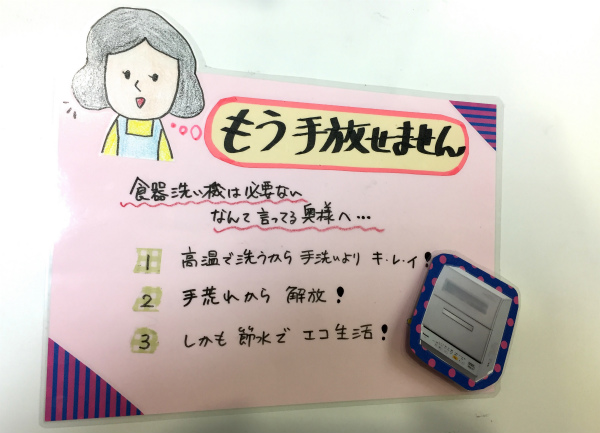 もう手放せません
食器洗い機は必要ない
なんて言ってる奥様へ…
1 高温で洗うから 手洗いより キ・レ・イ!
2 手荒れから 解放!
3 しかも 節水で エコ生活!